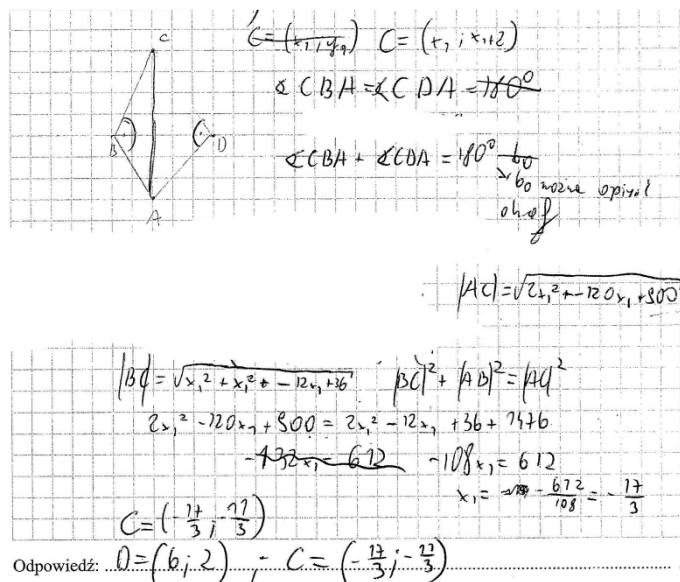 C
B
D
A
C = (x₁; y₁) C = (x₁; x₁+2)
∢CBA = ∢CDA = 180°
∢CBA + ∢CDA = 180° bo
bo można opisać
okrąg
|AC| = √2x₁² + -120x₁ + 900
|BC| = √x₁² + x₁² + -12x₁ + 36 |BC|² + |AB|² = |AC|²
2x₁² - 120x₁ + 900 = 2x₁² - 12x₁ + 36 + 1476
-132x₁ = 612 -108x₁ = 612
x₁ = - 612/108 = - 17/3
C = (-17/3; -11/3)
Odpowiedź: D = (6; 2) ; C = (-17/3; -11/3)